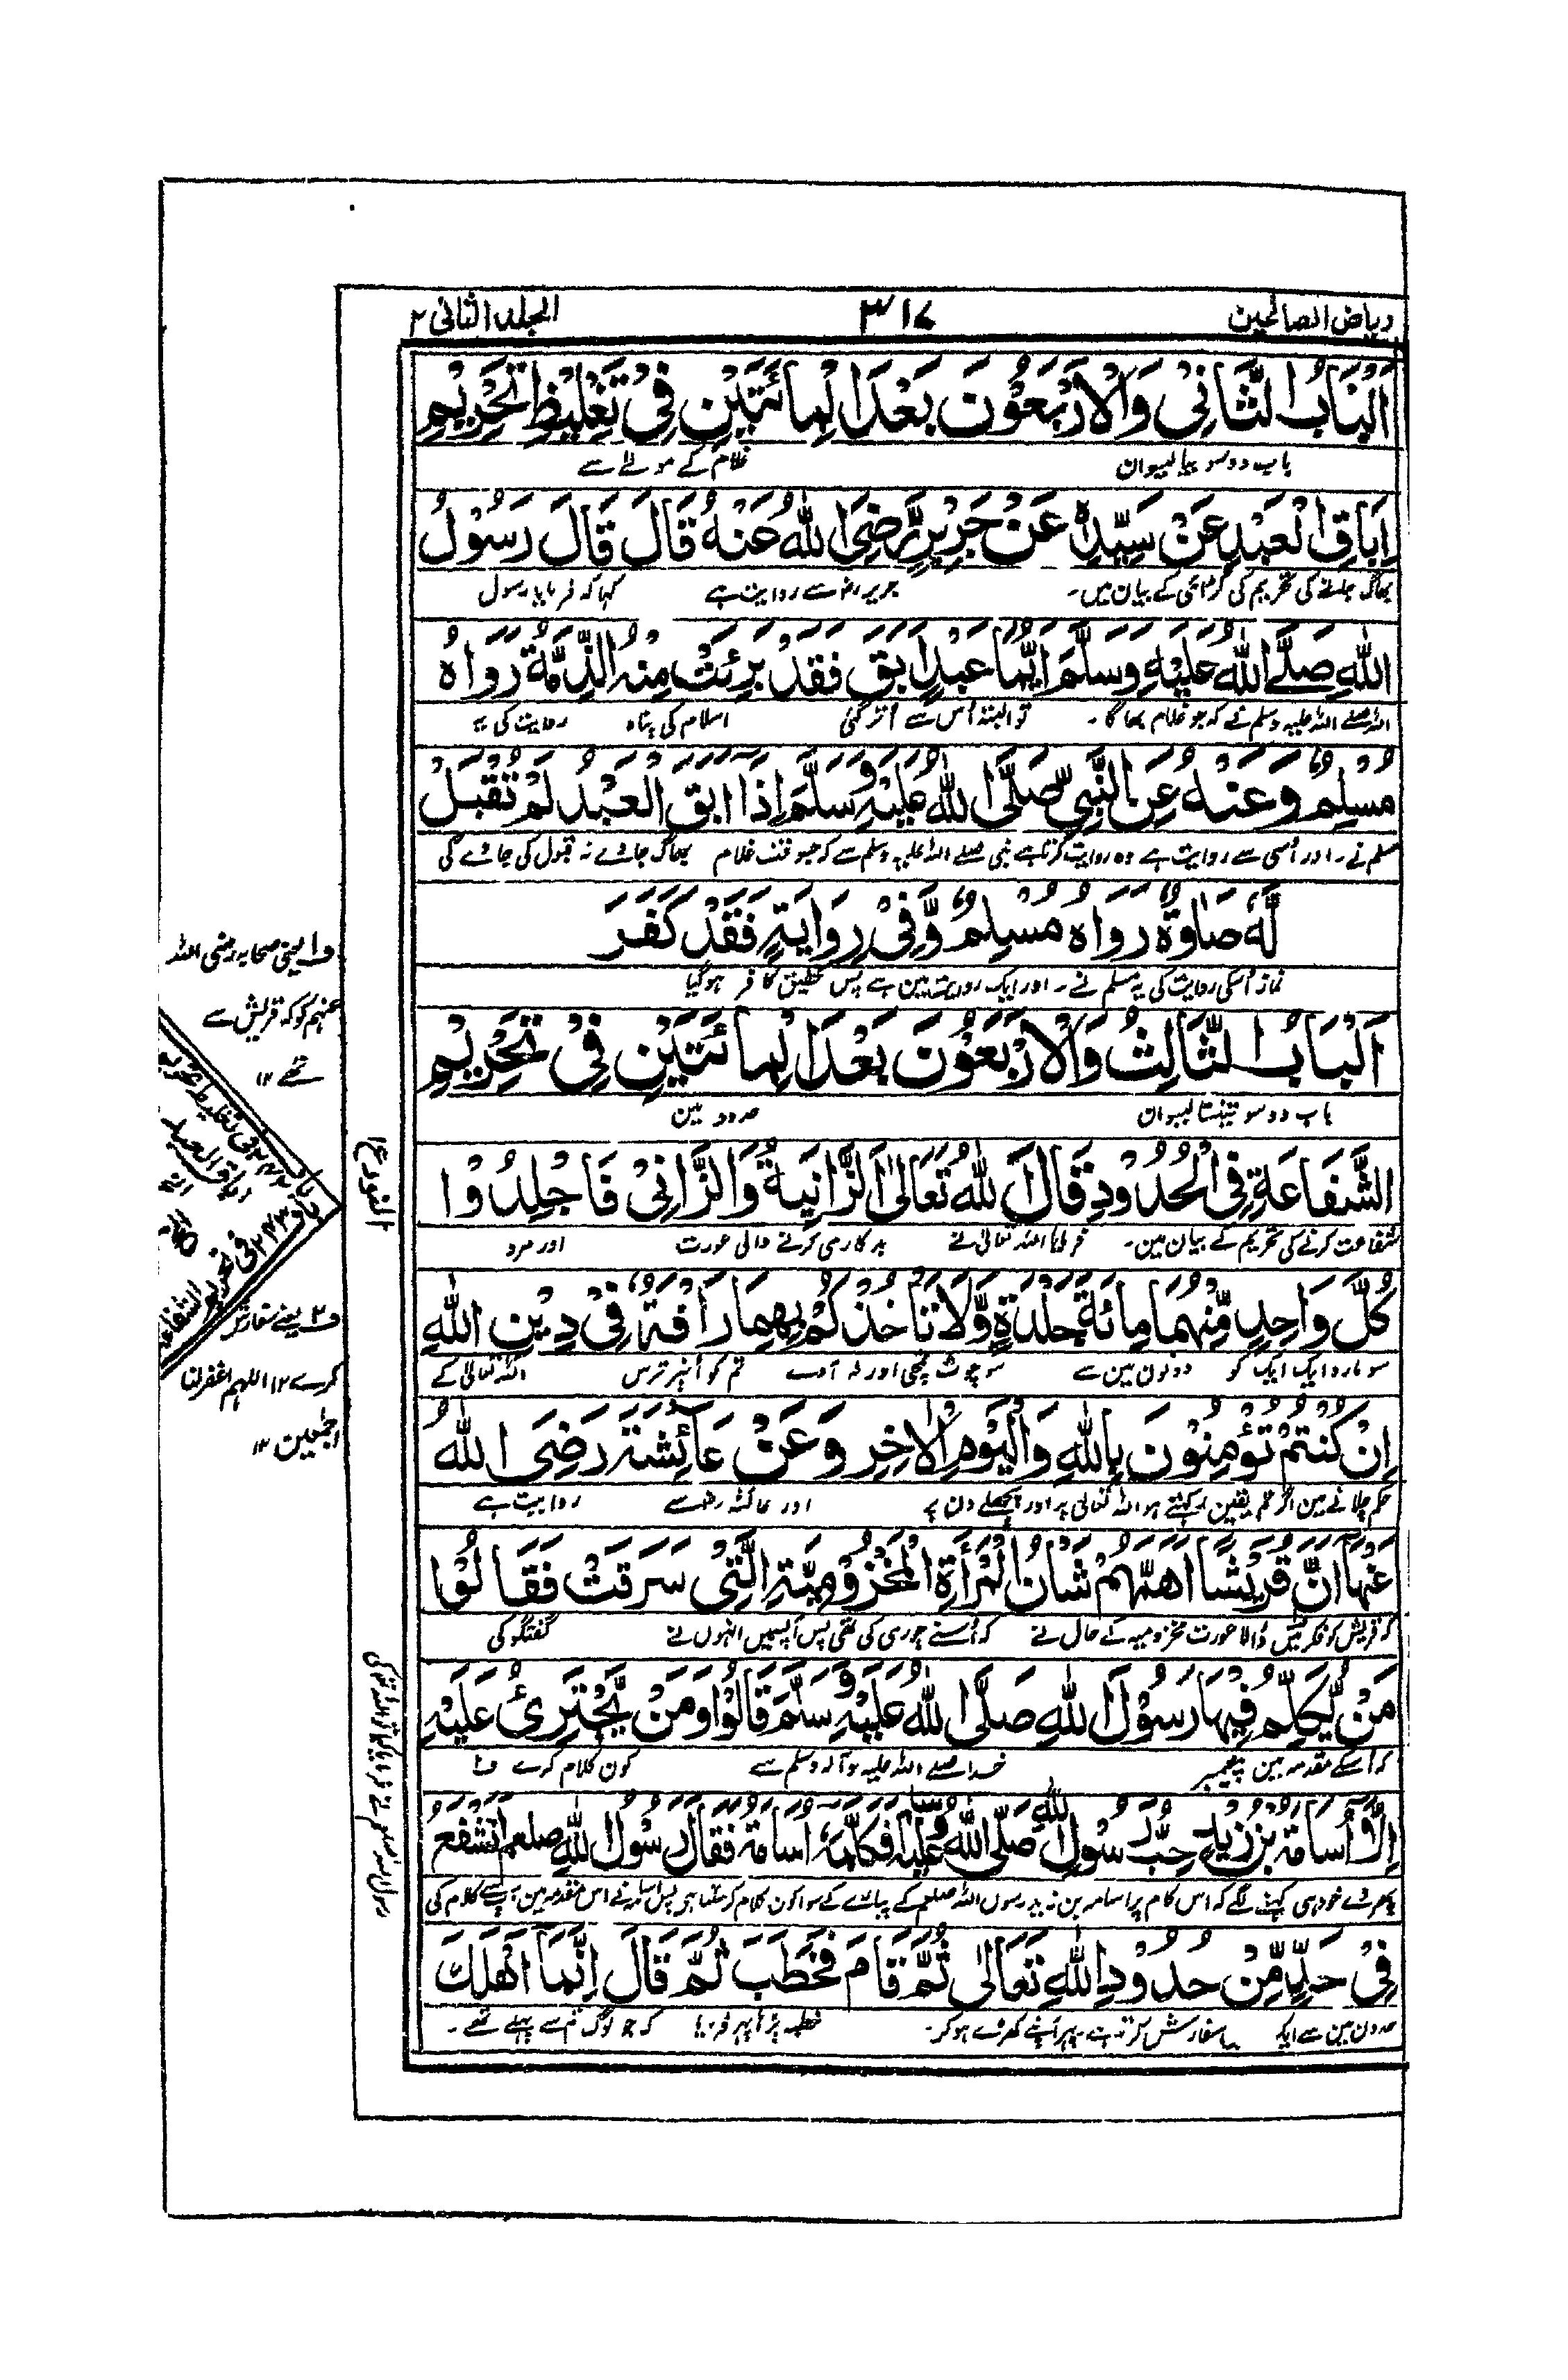 رياض الصالحين ٣١٧ المجلد الثانی ٢
اَلْبَابُ الثَّانِیْ وَالْاَرْبَعُوْنَ بَعْدَ الْمِائَتَيْنِ فِیْ تَغْلِيْظِ تَحْرِيْمِ
باب دوسو بیالیسوان غلام کے مولے سے
اِبَاقِ الْعَبْدِ عَنْ سَيِّدِهٖ عَنْ جَرِيْرٍ رَّضِیَ اللّٰهُ عَنْهُ قَالَ قَالَ رَسُوْلُ
بھاگ جانے کی تحریم کی گرانی کے بیان میں۔ جریر رض سے روایت ہے کہا کہ فرمایا رسول
اللّٰهِ صَلَّے اللّٰهُ عَلَيْهِ وَسَلَّمَ اَيُّمَا عَبْدٍ اَبَقَ فَقَدْ بَرِئَتْ مِنْهُ الذِّمَّةُ رَوَاهُ
اللہ صلے اللہ علیہ وسلم نے کہ جو غلام بھاگا۔ تو البتہ اُس سے اُتر گئی اسلام کی پناہ روایت کی یہ
مُسْلِمٌ وَعَنْهُ عَنِ النَّبِیِّ صَلَّی اللّٰهُ عَلَيْهِ وَسَلَّمَ اِذَا اَبَقَ الْعَبْدُ لَمْ تُقْبَلْ
مسلم نے۔ اور اُسی سے روایت ہے وہ روایت کرتا ہے نبی صلے اللہ علیہ وسلم سے کہ جسوقت غلام بھاگ جاوے نہ قبول کی جاوے گی
لَهٗ صَلٰوةٌ رَوَاهُ مُسْلِمٌ وَّفِیْ رِوَايَةٍ فَقَدْ كَفَرَ
نماز اُسکی روایت کی یہ مسلم نے۔ اور ایک روایت مین ہے پس تحقیق کافر ہوگیا
اَلْبَابُ الثَّالِثُ وَالْاَرْبَعُوْنَ بَعْدَ الْمِائَتَيْنِ فِیْ تَحْرِيْمِ
باب دوسو تینتالیسوان حدود مین
الشَّفَاعَةِ فِی الْحُدُوْدِ قَالَ اللّٰهُ تَعَالٰی اَلزَّانِيَةُ وَالزَّانِیْ فَاجْلِدُوْا
شفاعت کرنے کی تحریم کے بیان مین۔ فرمایا اللہ تعالیٰ نے بدکاری کرنے والی عورت اور مرد
كُلَّ وَاحِدٍ مِّنْهُمَا مِائَةَ جَلْدَةٍ وَّلَا تَاْخُذْكُمْ بِهِمَا رَاْفَةٌ فِیْ دِيْنِ اللّٰهِ
سو مارو ایک ایک کو دونون مین سے سو چوٹ قمچی اور نہ آوے تم کو اُنپر ترس اللہ تعالیٰ کے
اِنْ كُنْتُمْ تُؤْمِنُوْنَ بِاللّٰهِ وَالْيَوْمِ الْاٰخِرِ وَعَنْ عَائِشَةَ رَضِیَ اللّٰهُ
حکم چلانے مین اگر تم یقین رکہتے ہو اللہ تعالیٰ پر اور پچھلے دن پر اور عائشہ رض سے روایت ہے
عَنْهَا اَنَّ قُرَيْشًا اَهَمَّهُمْ شَاْنُ الْمَرْأَةِ الْمَخْزُوْمِيَّةِ الَّتِیْ سَرَقَتْ فَقَالُوْا
کہ قریش کو فکر میں ڈالا عورت مخزومیہ کے حال نے کہ اُسنے چوری کی تھی پس آپسمیں انہوں نے گفتگو کی
مَنْ يُّكَلِّمُ فِيْهَا رَسُوْلَ اللّٰهِ صَلَّی اللّٰهُ عَلَيْهِ وَسَلَّمَ قَالُوْا وَمَنْ يَّجْتَرِئُ عَلَيْهِ
کہ اُسکے مقدمہ مین پیغمبر خدا صلے اللہ علیہ وآلہ وسلم سے کون کلام کرے ف۱
اِلَّا اُسَامَةُ بْنُ زَيْدٍ حِبُّ رَسُوْلِ اللّٰهِ صَلَّی اللّٰهُ عَلَيْهِ وَسَلَّمَ فَكَلَّمَهٗ اُسَامَةُ فَقَالَ رَسُوْلُ اللّٰهِ صلعم اَتَشْفَعُ
پھر وے خود ہی کہنے لگے کہ اس کام پر اسامہ بن زید رسول اللہ صلعم کے پیارے کے سوا کون کلام کرسکتا ہے پس اسامہ نے اس مقدمہ مین آپ سے کلام کی
فِیْ حَدٍّ مِّنْ حُدُوْدِ اللّٰهِ تَعَالٰی ثُمَّ قَامَ فَخَطَبَ ثُمَّ قَالَ اِنَّمَا اَهْلَكَ
حدون مین سے ایک سفارش کرتا ہے پہر آپنے کھڑے ہوکر۔ خطبہ پڑہا پہر فرمایا کہ جو لوگ تم سے پہلے تھے۔
ف۱ یعنی صحابہ رضی اللہ
عنہم کو کہ قریش سے
تھے ١٢
ف۲ یعنے سفارش
کرے ١٢ اللہم اغفر لنا
اجمعین ١٢
النور ع